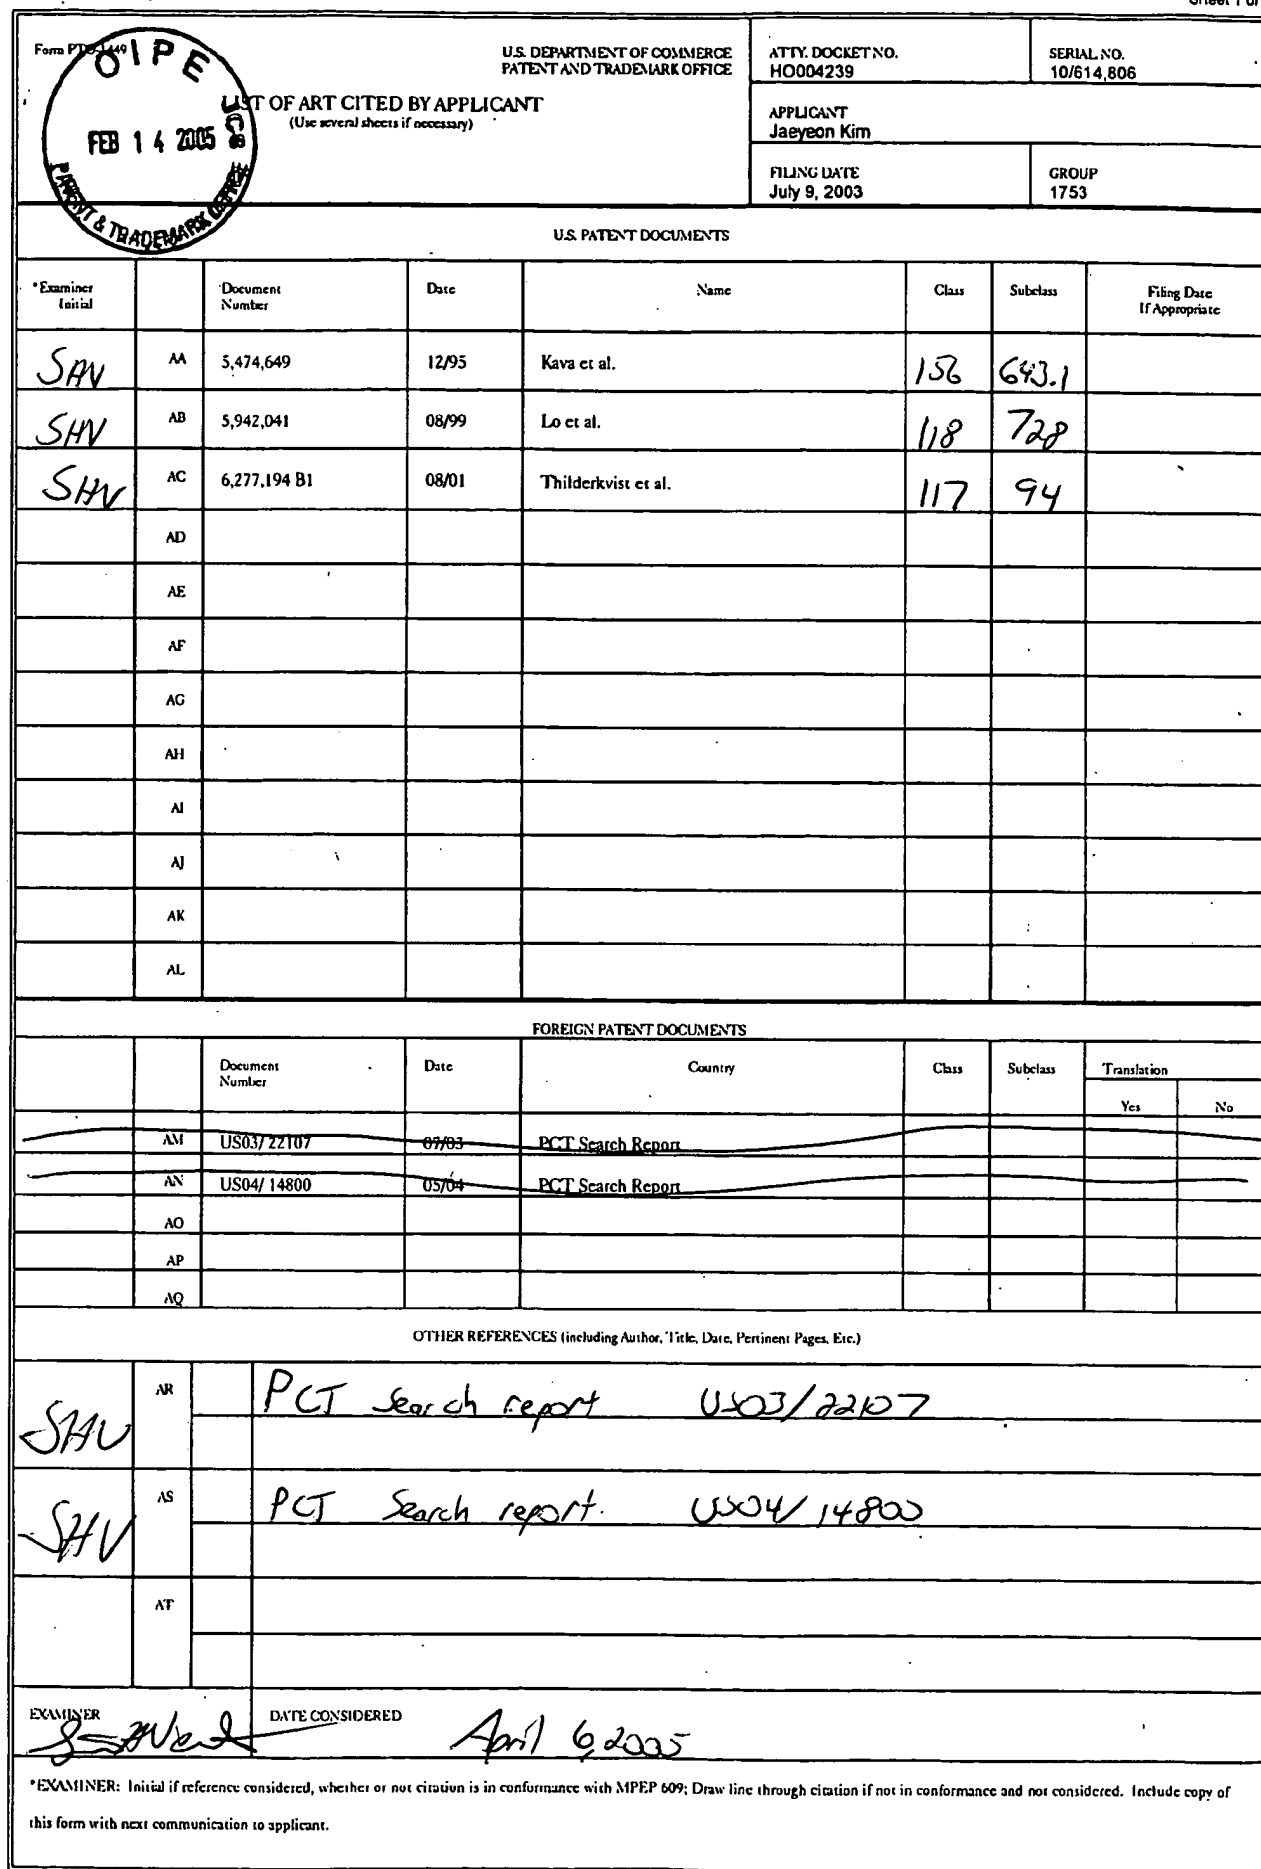 Form PTO-1449
U.S. DEPARTMENT OF COMMERCE
PATENT AND TRADEMARK OFFICE
LIST OF ART CITED BY APPLICANT
(Use several sheets if necessary)
OIPE
FEB 14 2005
PATENT & TRADEMARK OFFICE
ATTY. DOCKET NO.
HO004239
SERIAL NO.
10/614,806
APPLICANT
Jaeyeon Kim
FILING DATE
July 9, 2003
GROUP
1753
U.S. PATENT DOCUMENTS
*Examiner Initial Document Number Date Name Class Subclass Filing Date If Appropriate
SHV AA 5,474,649 12/95 Kava et al. 156 643.1
SHV AB 5,942,041 08/99 Lo et al. 118 728
SHV AC 6,277,194 B1 08/01 Thilderkvist et al. 117 94
AD
AE
AF
AG
AH
AI
AJ
AK
AL
FOREIGN PATENT DOCUMENTS
Document Number Date Country Class Subclass Translation
Yes No
AM US03/22107 07/03 PCT Search Report
AN US04/ 14800 05/04 PCT Search Report
AO
AP
AQ
OTHER REFERENCES (including Author, Title, Date, Pertinent Pages, Etc.)
SHV AR PCT Search report US03/22107
SHV AS PCT Search report. US04/14800
AT
EXAMINER DATE CONSIDERED April 6, 2005
*EXAMINER: Initial if reference considered, whether or not citation is in conformance with MPEP 609; Draw line through citation if not in conformance and not considered. Include copy of
this form with next communication to applicant.